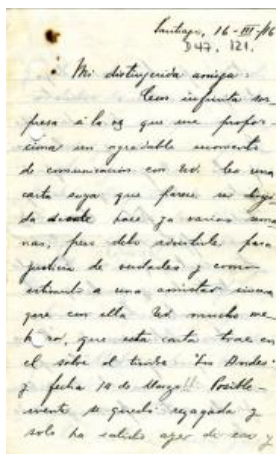 Santiago, 16-III-16
D47. 121.
Mi distinguida amiga:
Con infinita sor-
presa á la vez que me propor-
ciona un agradable momento
de comunicación con Ud. leo una
carta suya que parece ser
da desde hace ya varias sema
nas, pero debo advertirle, para
justicia de verdades y como
estímulo a una amistad sincera
que con ella Ud mucho me
honró, que esta carta trae en
el sobre el timbre "Los Andes"
y fecha 14 de Marzo!! Posible-
mente se quedó rezagada y
solo ha salido ayer de esa y